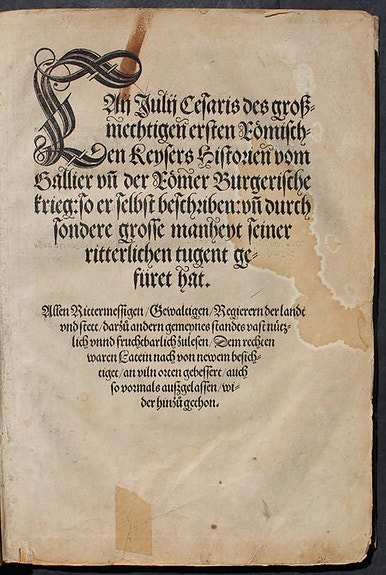 Caij Julij Cesaris des groß⸗
mechtigen ersten Römisch⸗
en Keysers Historien vom
Gallier vn̄ der Römer Burgerische
krieg: so er selbst beschriben: vn̄ durch
sondere grosse manheyt seiner
ritterlichen tugent ge⸗
füret hat.
Allen Rittermessigen / Gewaltigen / Regierern der landt
vnd stett / darzů andern gemeynes standes vast nütz⸗
lich vnnd fruchtbarlich zůlesen / Dem rechten
waren Latein nach von newem besich⸗
tiget / an viln orten gebessert / auch
so vormals außgelassen / wi⸗
der hinzů gethon.